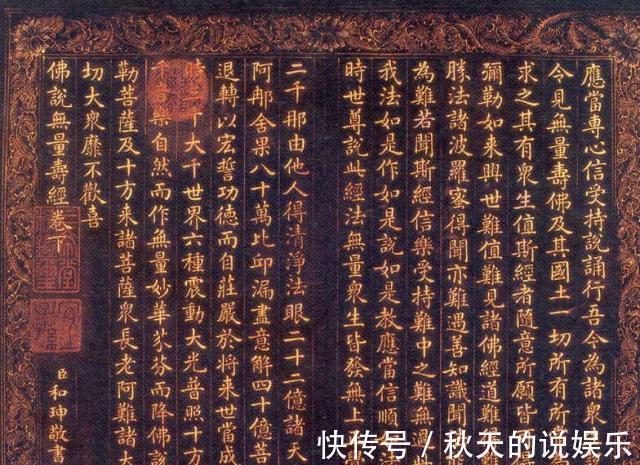 應當專心信受持說誦行吾今為諸衆
今見無量壽佛及其國土一切所有所
求之其有衆生值斯經者隨意所願皆
彌勒如来興世難值難見諸佛經道難
勝法諸波羅蜜得聞亦難遇善知識聞
為難若聞斯經信樂受持難中之難無
我法如是作如是說如是教應當信順
時世尊說此經法無量衆生皆發無上
二千那由他人得清淨法眼二十二億諸天
阿那舍果八十萬比邱漏盡意解四十億菩
退轉以宏誓功德而自莊嚴於將来世當成
時大千世界六種震動大光普照十方
音樂自然而作無量妙華芬而降佛說
勒菩薩及十方来諸菩薩衆長老阿難諸大
切大衆靡不歡喜
佛說無量壽經卷下
臣和珅敬書
快传号 / 秋天的说娱乐